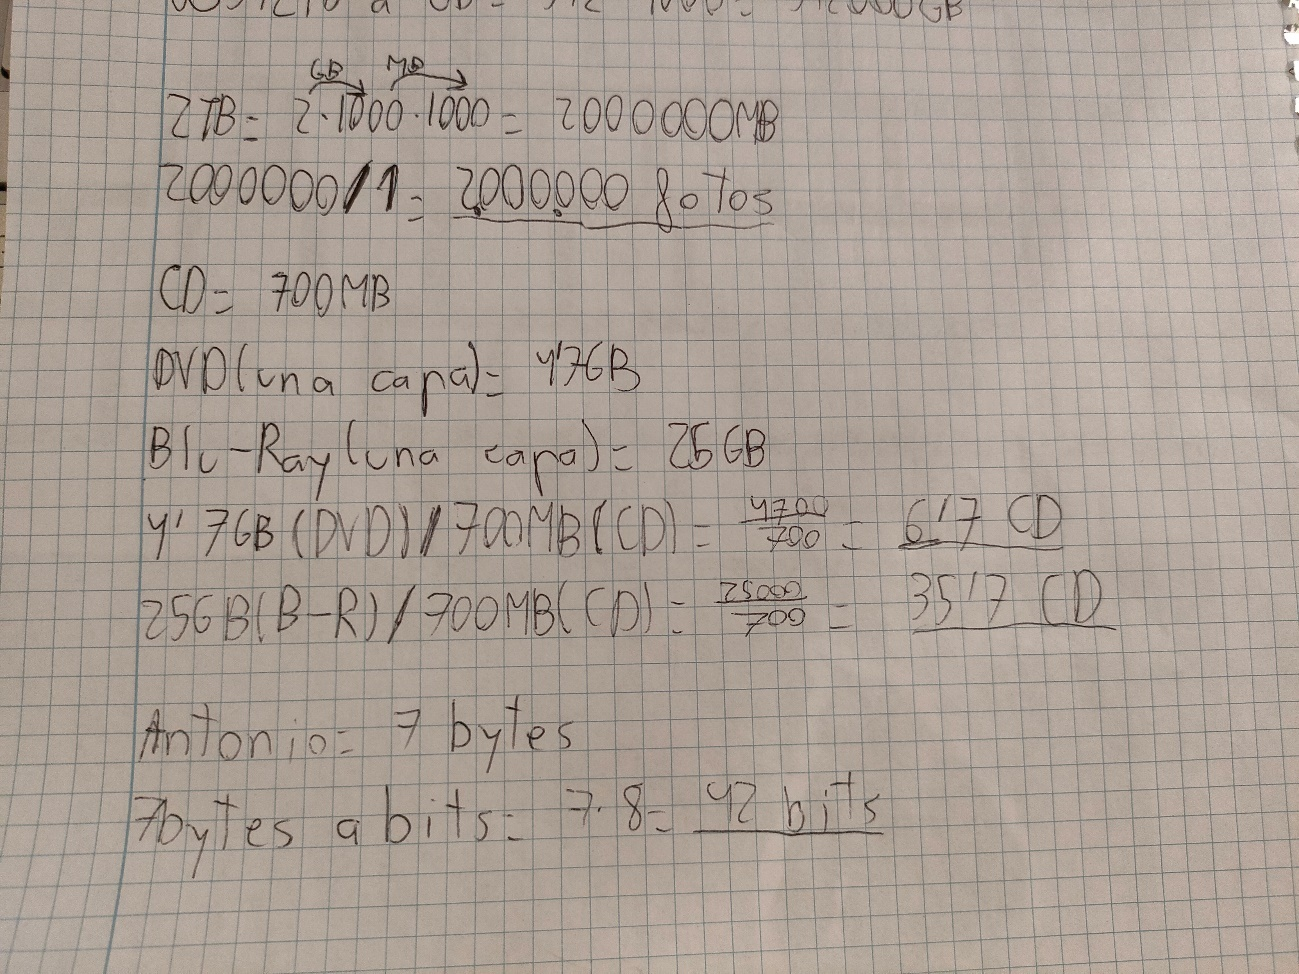 GB MB
2TB= 2·1000·1000= 2000000MB
2000000/1= 2.000.000 fotos
CD= 700MB
DVD(una capa)= 4'7GB
Blu-Ray(una capa)= 25GB
4'7GB(DVD)/700MB(CD)= 4700/700 = 6'7 CD
25GB(B-R)/700MB(CD)= 25000/700 = 35'7 CD
Antonio= 7 bytes
7bytes a bits= 7·8= 42 bits